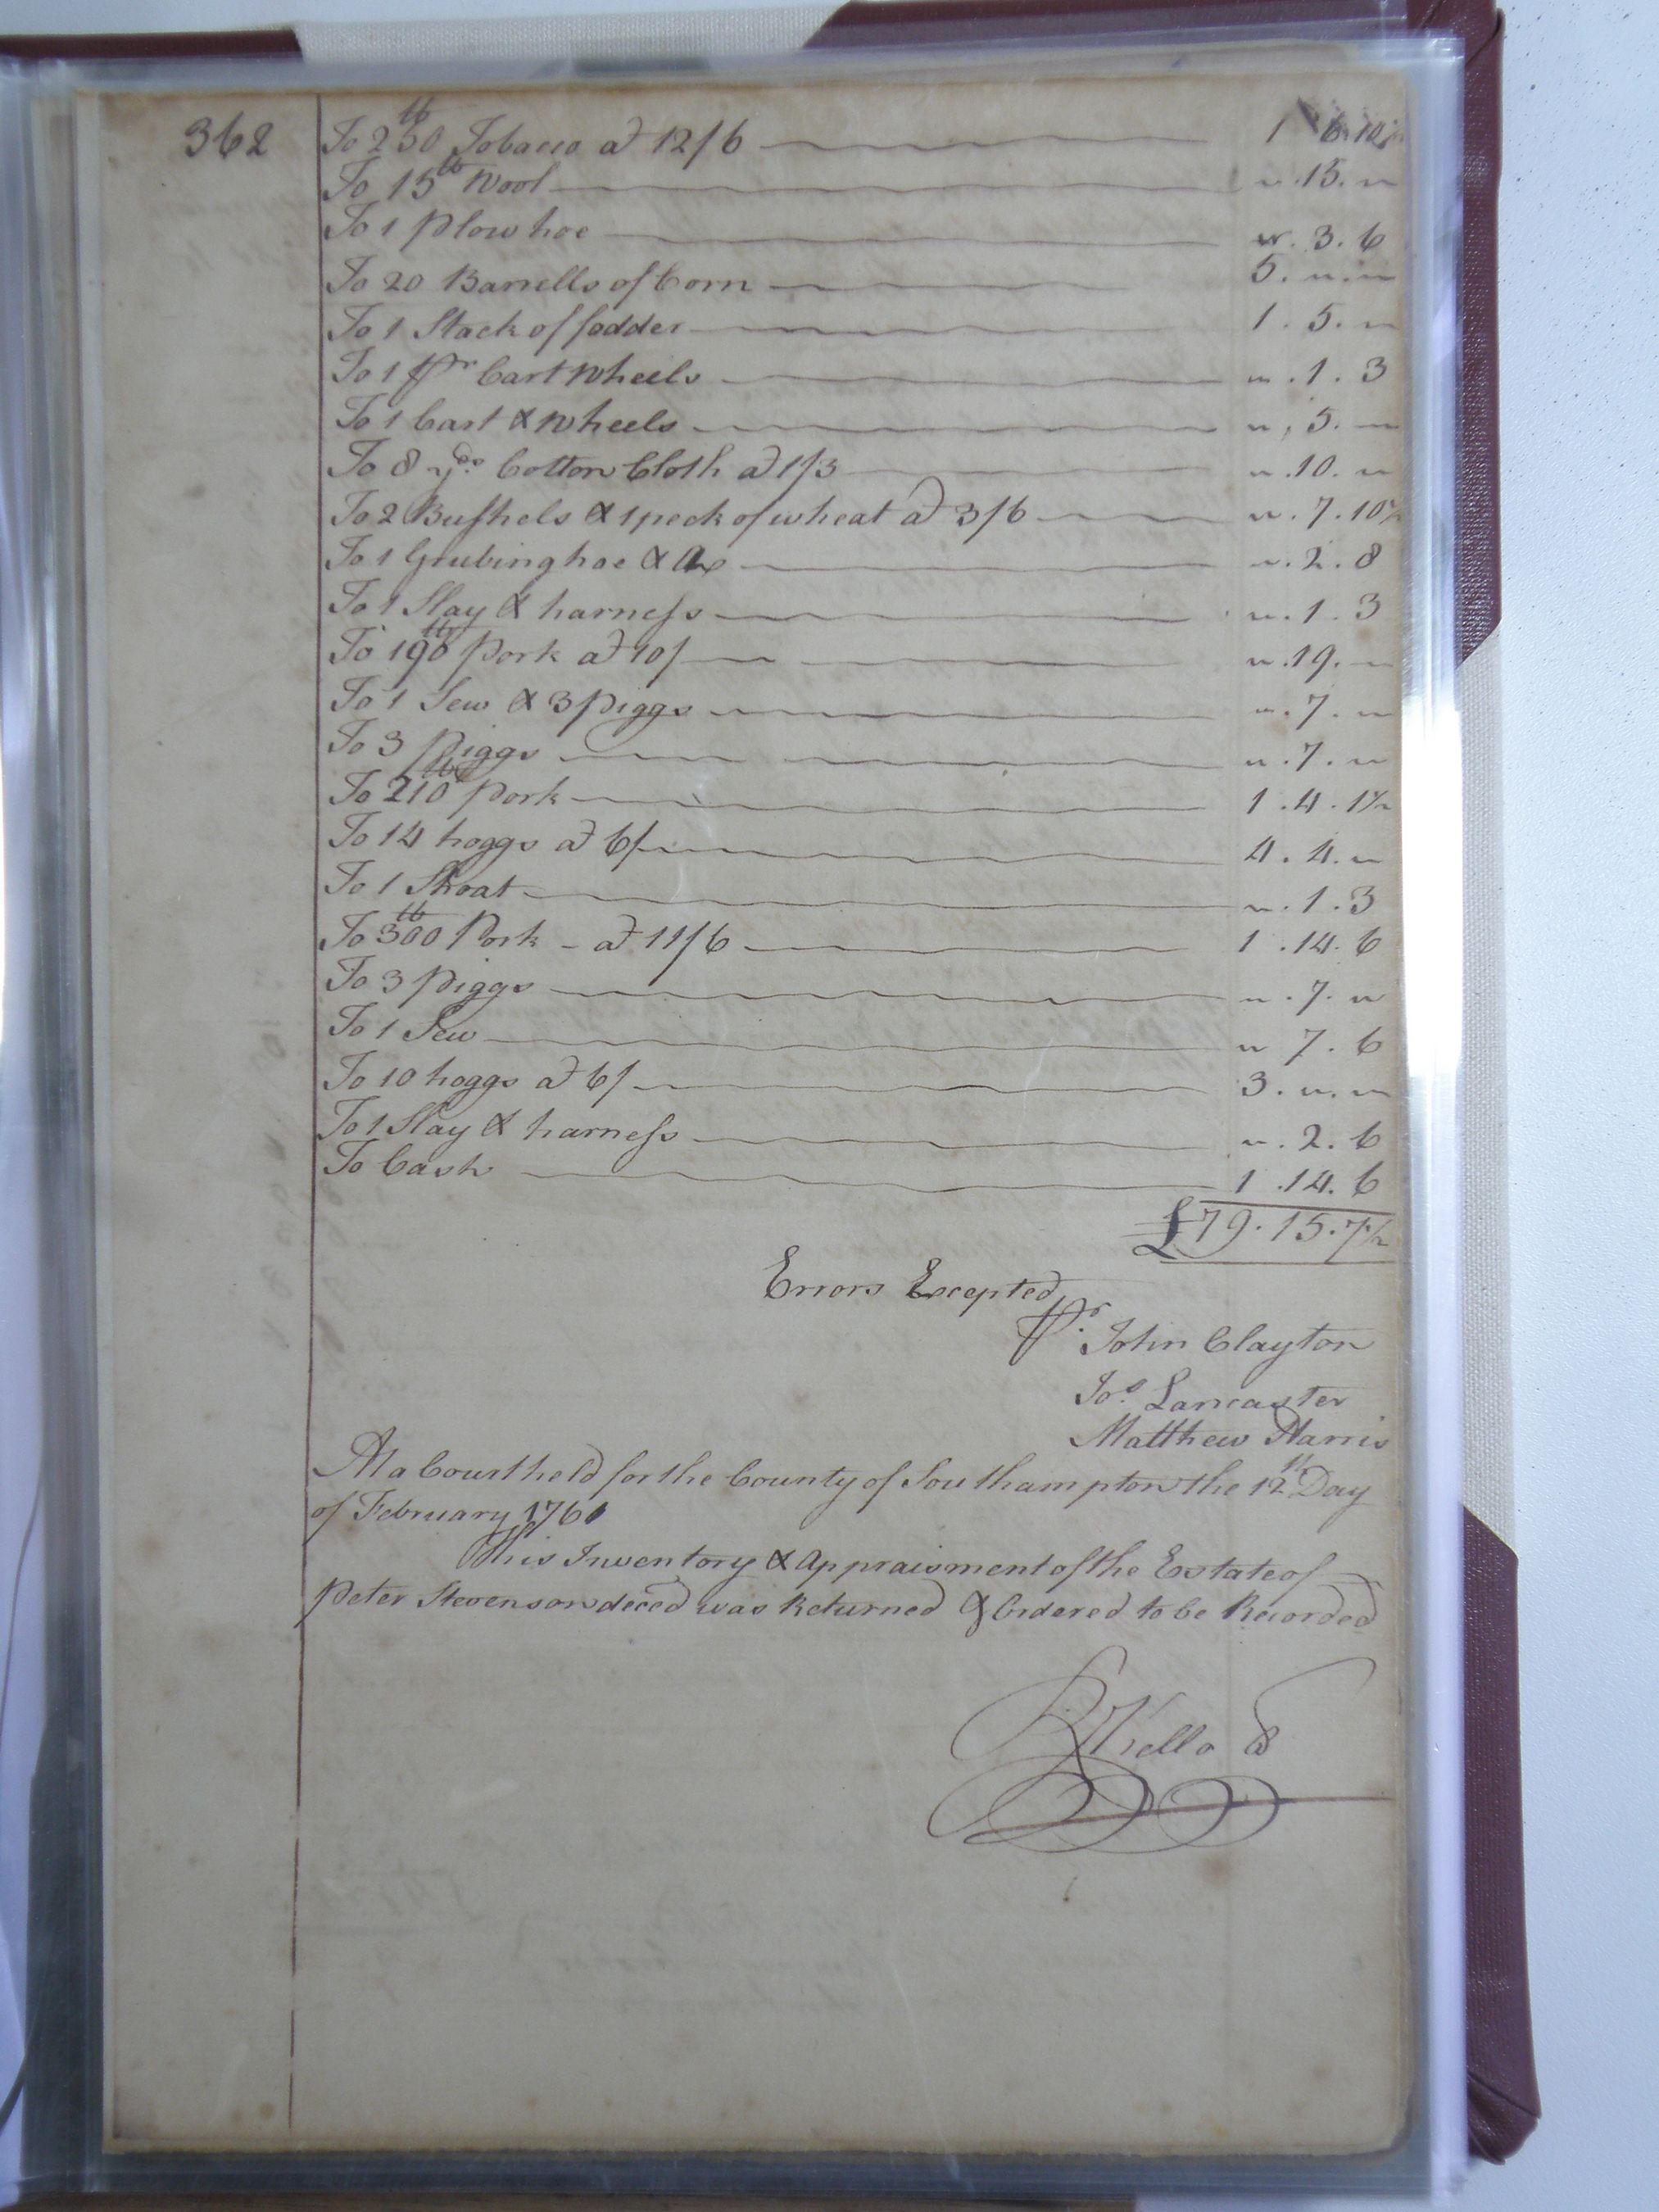 362
To 250 lb Tobacco a 12/6 1 6 10
To 15 lb Wool " .15. "
To 1 Plow hoe " . 3 . 6
To 20 Barrells of Corn 5 . " . "
To 1 Stack of fodder 1 . 5 . "
To 1 pr Cart Wheels " . 1 . 3
To 1 Cart & Wheels " , 5 . "
To 8 yds Cotton Cloth a 1/3 " .10. "
To 2 Bushels & 1 peck of wheat a 3/6 " . 7 . 10½
To 1 Grubing hoe & Ax " . 2 . 8
To 1 Slay & harness " . 1 . 3
To 190 lb Pork a 10/ " .19. "
To 1 Sew & 3 piggs " . 7 . "
To 3 Piggs " . 7 . "
To 210 lb Pork 1 . 4 . 1½
To 14 hoggs a 6/ 4 . 4 . "
To 1 Shoat " . 1 . 3
To 300 lb Pork - a 11/6 1 .14. 6
To 3 Piggs " . 7 . "
To 1 Sew " 7 . 6
To 10 hoggs a 6/ 3 . " . "
To 1 Slay & harness " . 2 . 6
To Cash 1 .14. 6
£79 . 15 . 7½
Errors Excepted
Pr. John Clayton
Jos. Lancaster
Matthew Harris
At a Court held for the County of Southampton the 12th Day
of February 1761
This Inventory & Appraisment of the Estate of
Peter Stevenson deced was Returned & Ordered to be Recorded
R Kello